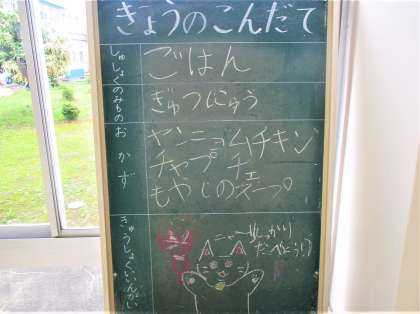 きょうのこんだて
しゅしょく
ごはん
のみもの
ぎゅうにゅう
おかず
ヤンニョムチキン
チャプチェ
もやしのスープ
きゅうしょくいいんかい
ニャー
しっかり
たべにゃう!